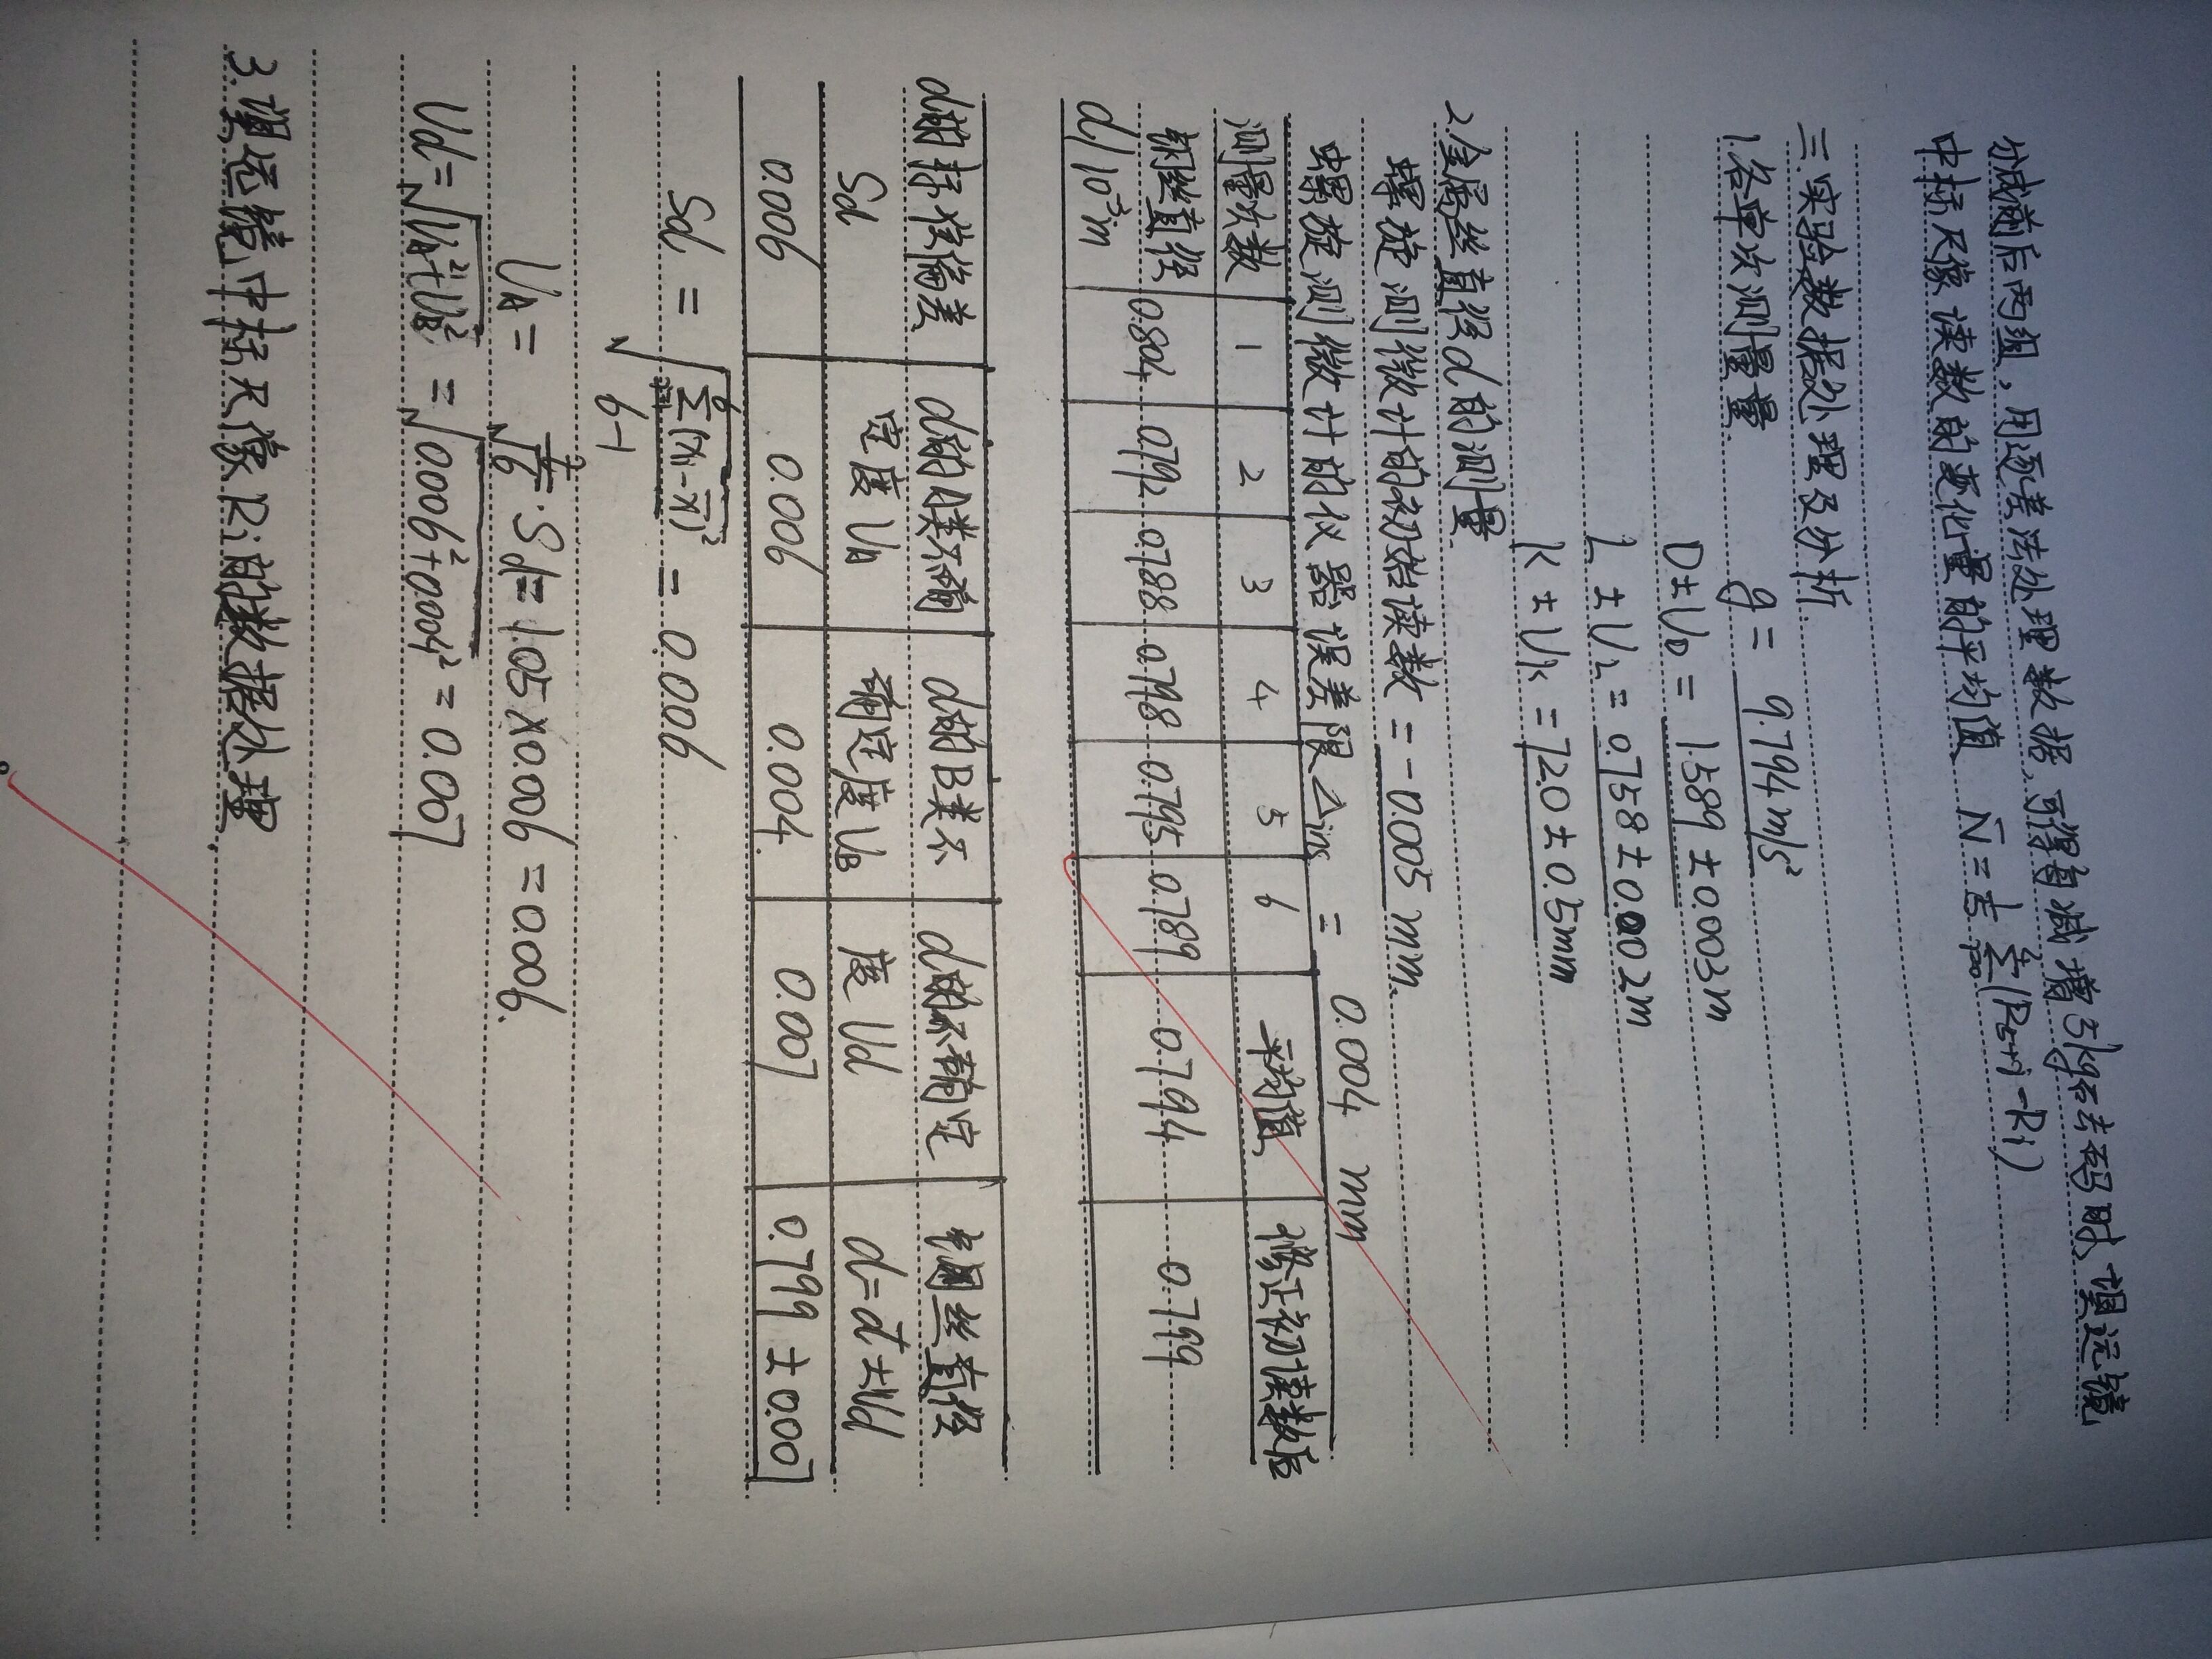 分成前后两组，用逐差法处理数据，可得每减增5kg砝码时，望远镜
中标尺像读数的变化量的平均值 N̄ = 1/5 Σ(R5+i - Ri)
三.实验数据处理及分析
1.各单次测量量
g = 9.794 m/s²
D±UD = 1.589 ± 0.003m
L ± UL = 0.758 ± 0.002m
K ± UK = 72.0 ± 0.5mm
2.金属丝直径d的测量
螺旋测微计的初始读数 = -0.005 mm.
螺旋测微计的仪器误差限 Δins = 0.004 mm
测量次数 1 2 3 4 5 6 平均值 修正初读数后
钢丝直径 d/10⁻³m 0.804 0.792 0.788 0.798 0.795 0.789 0.794 0.799
d的标准偏差 Sd d的A类不确定度 UA d的B类不确定度 UB d的不确定度 Ud 钢丝直径 d=d̄±Ud
0.006 0.006 0.004 0.007 0.799 ± 0.007
Sd = √Σ(xi-x̄)²/6-1 = 0.006
UA = t/√6 · Sd = 1.05 × 0.006 = 0.006.
Ud = √UA²+UB² = √0.006²+0.004² = 0.007
3.望远镜中标尺像Ri的数据处理.